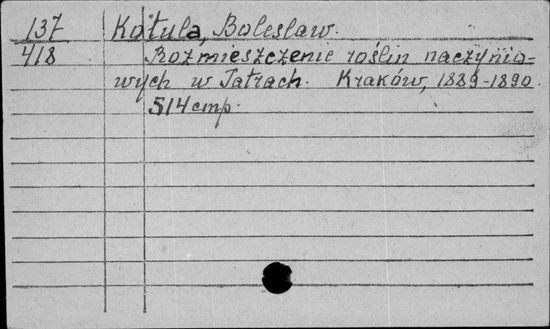 137 Kotula, Bolesław.
418 Rozmieszczenie roślin naczynio-
wych w Tatrach. Kraków, 1889-1890.
514 стр.